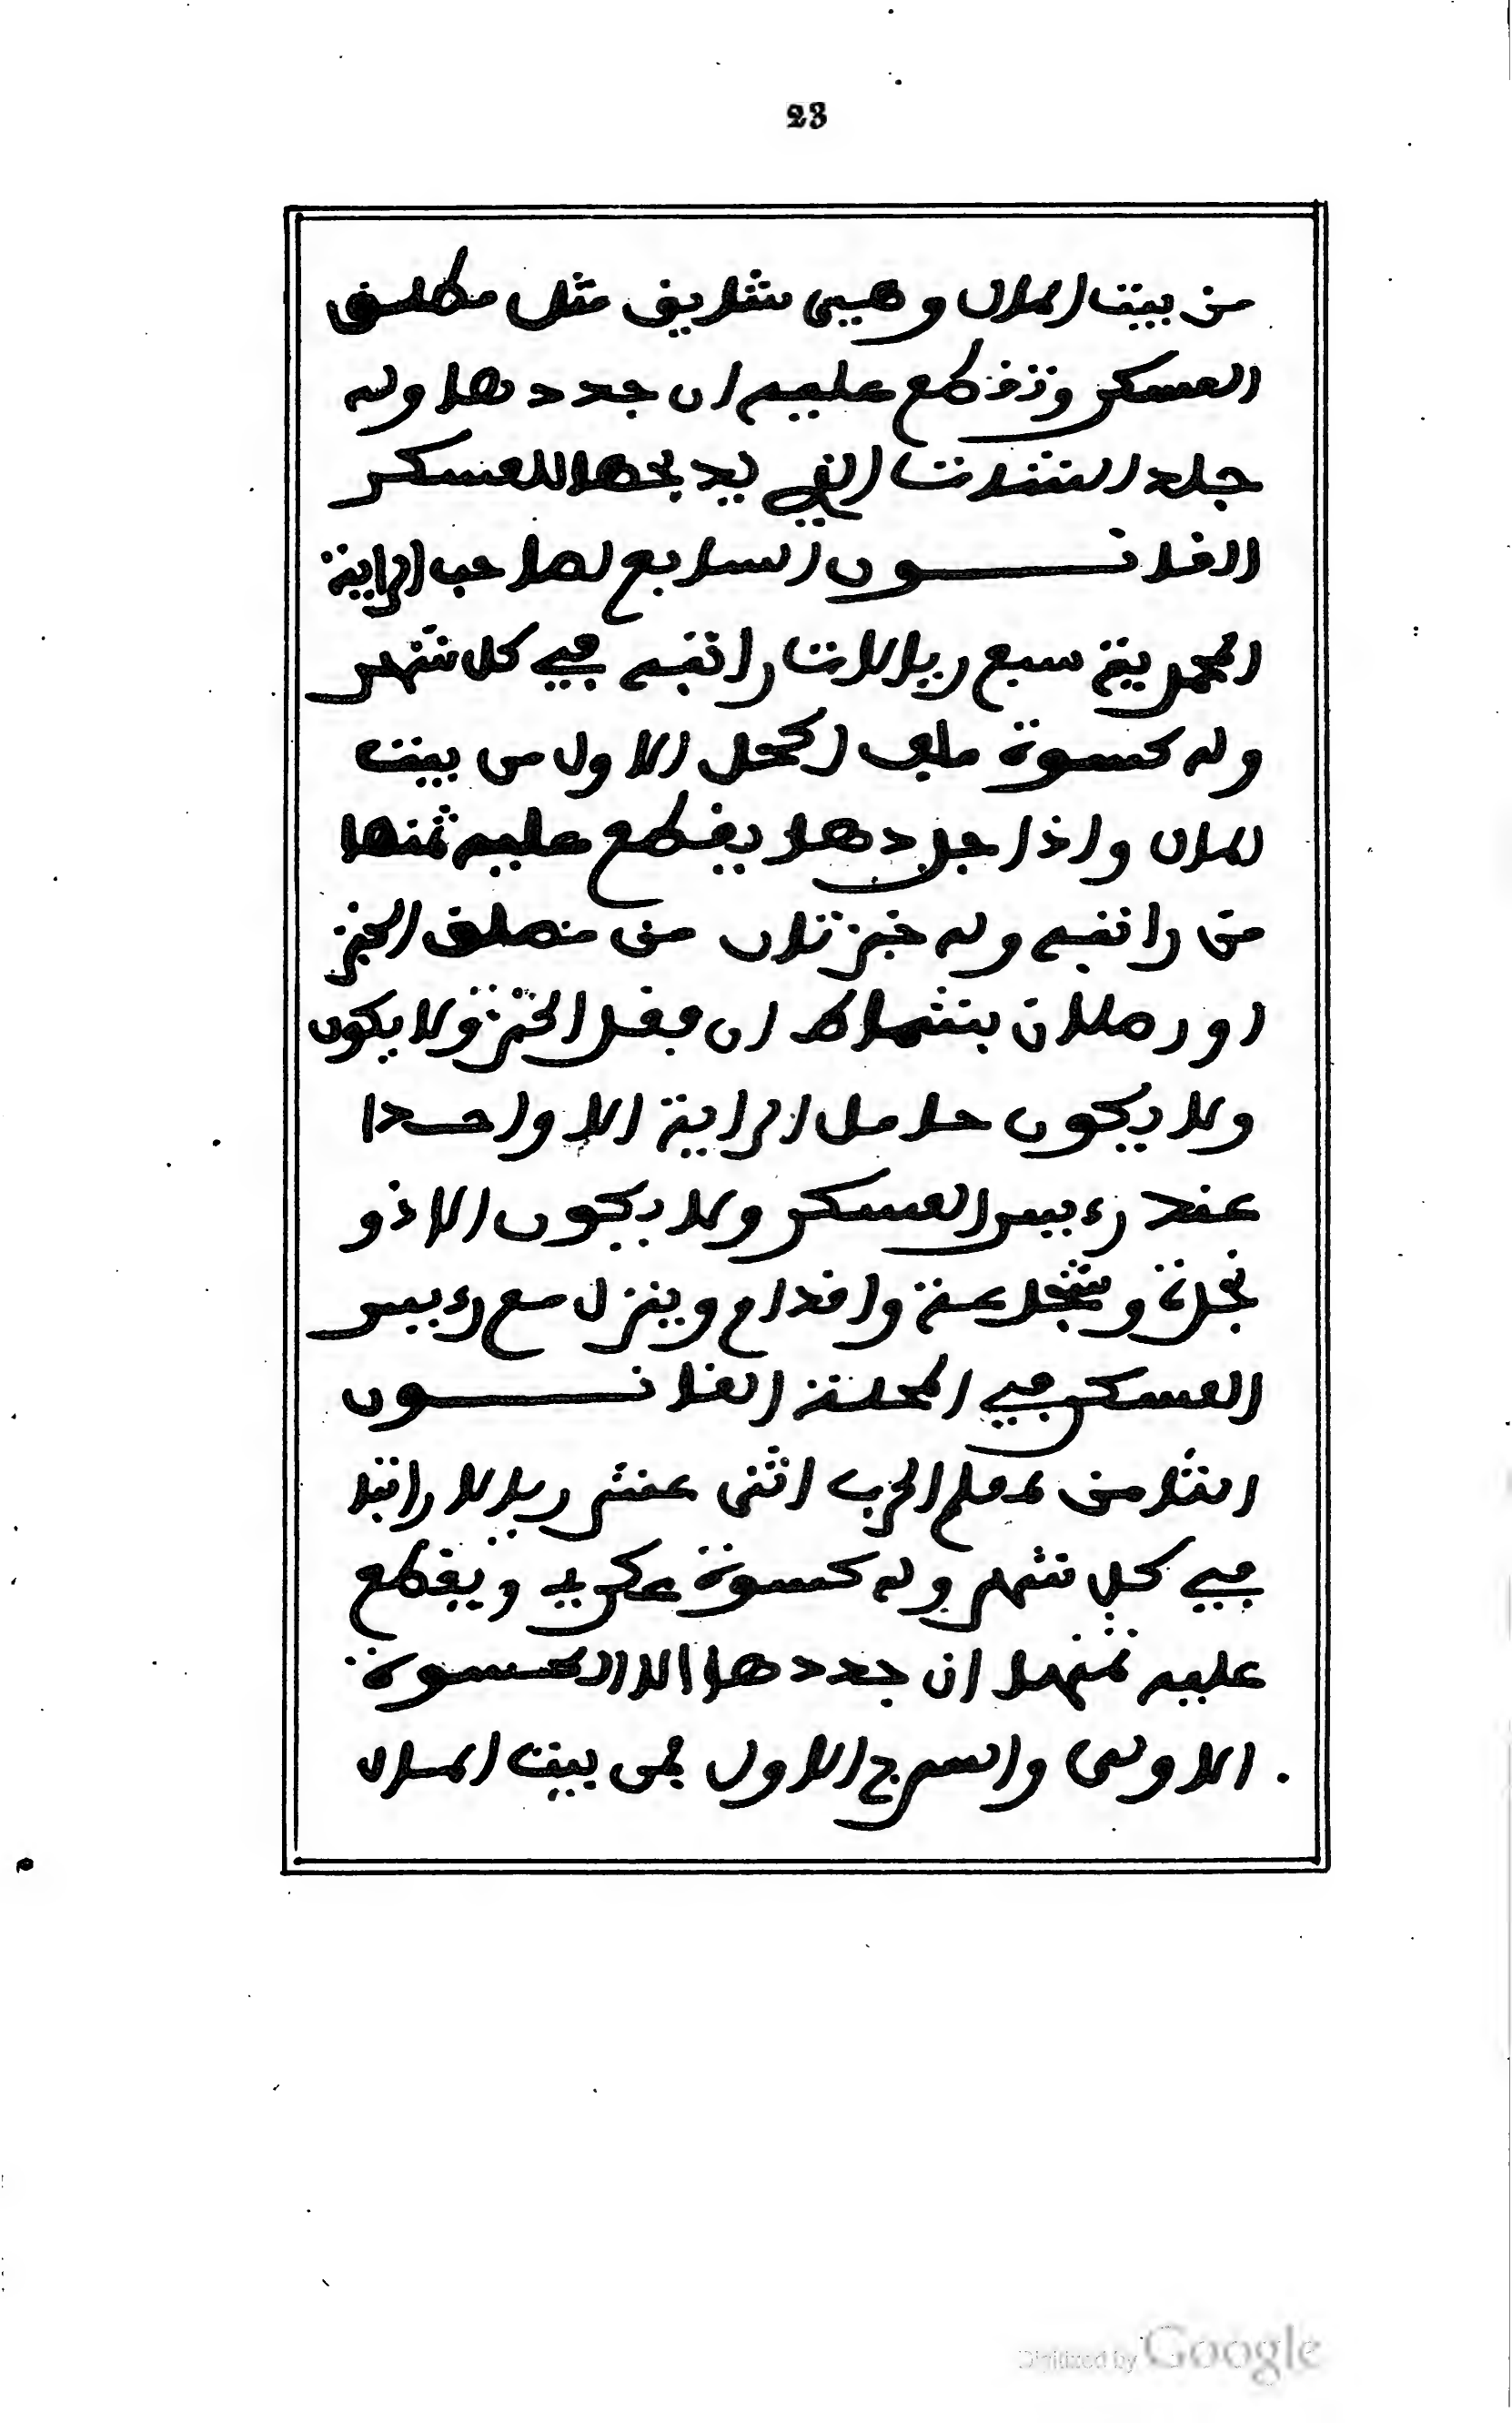 23
من بيت المال وهيى شاريف مثل مطلق
العسكر وتقطع عليه ان جددها وله
جلد الشات التي يدبحها للعسكر
القانون السابع لصاحب الراية
المحمدية سبع ريالات راتبه في كل شهر
وله كسوة ملف اكحل الاول من بيت
المال واذا جددها يقطع عليه ثمنها
من راتبه وله خبزتان من مطلق الخبز
او رطلان بشماط ان فقد الخبز ولا يكون
ولا يكون حامل الراية الا واحدا
عند رءيس العسكر ولا يكون الا ذو
نجدة وشجاعة واقدام وينزل مع رءيس
العسكر في المحلة القانون
الثامن علام الحرب اثنى عشر ريالا راتبا
في كل شهر وله كسوة عكري ويقطع
عليه ثمنها ان جددها الا الكسوة
الاولى والسرج الاول فمن بيت المال
Digitized by Google